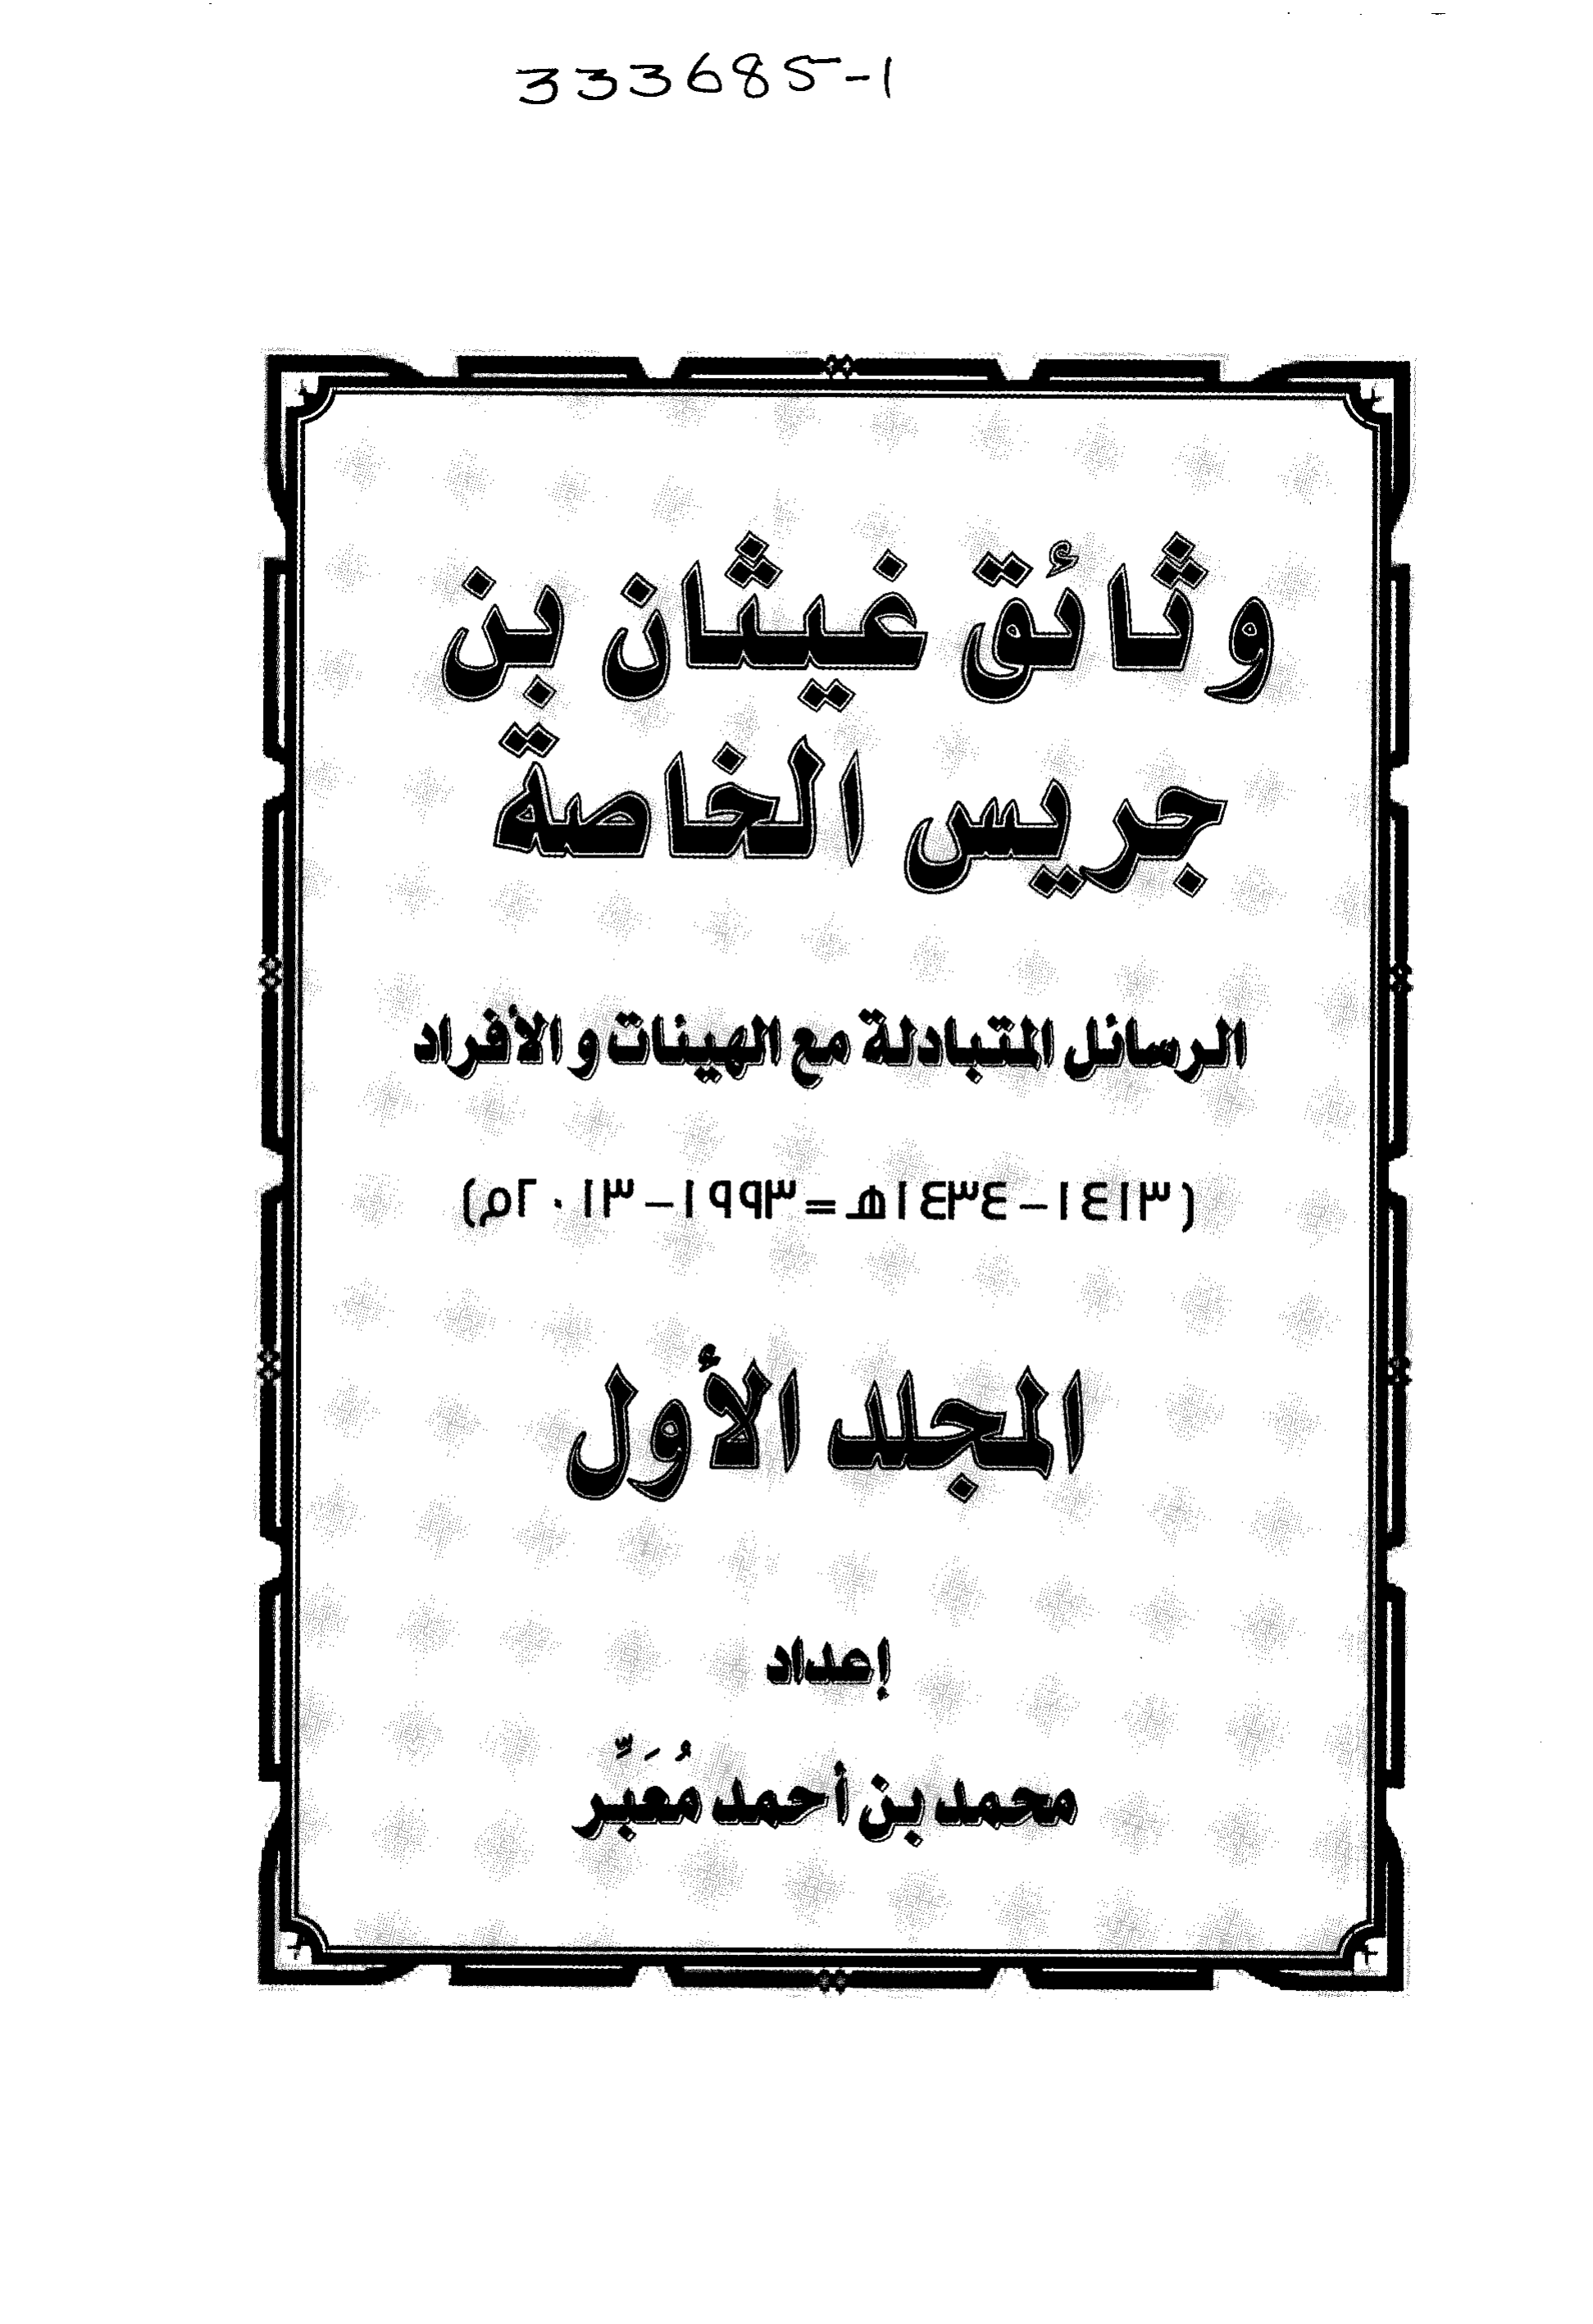 333685-1
وثائق غيثان بن
جريس الخاصة
الرسائل المتبادلة مع الهيئات والأفراد
(١٤١٣-١٤٣٤هـ=١٩٩٣-٢٠١٣م)
المجلد الأول
إعداد
محمد بن أحمد مُعَبِّر